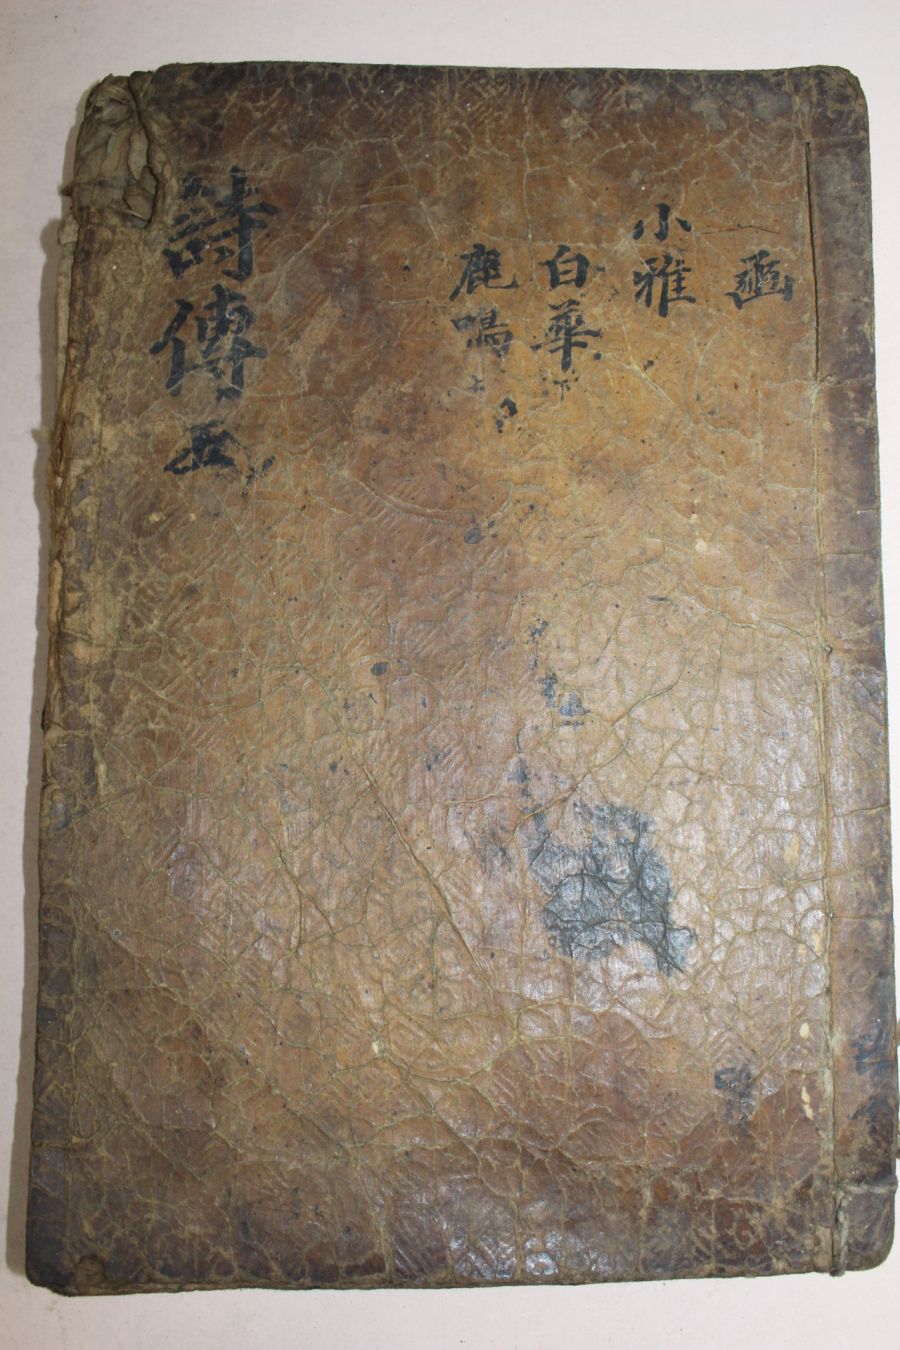 豳
小雅
白華
鹿鳴
詩傳五